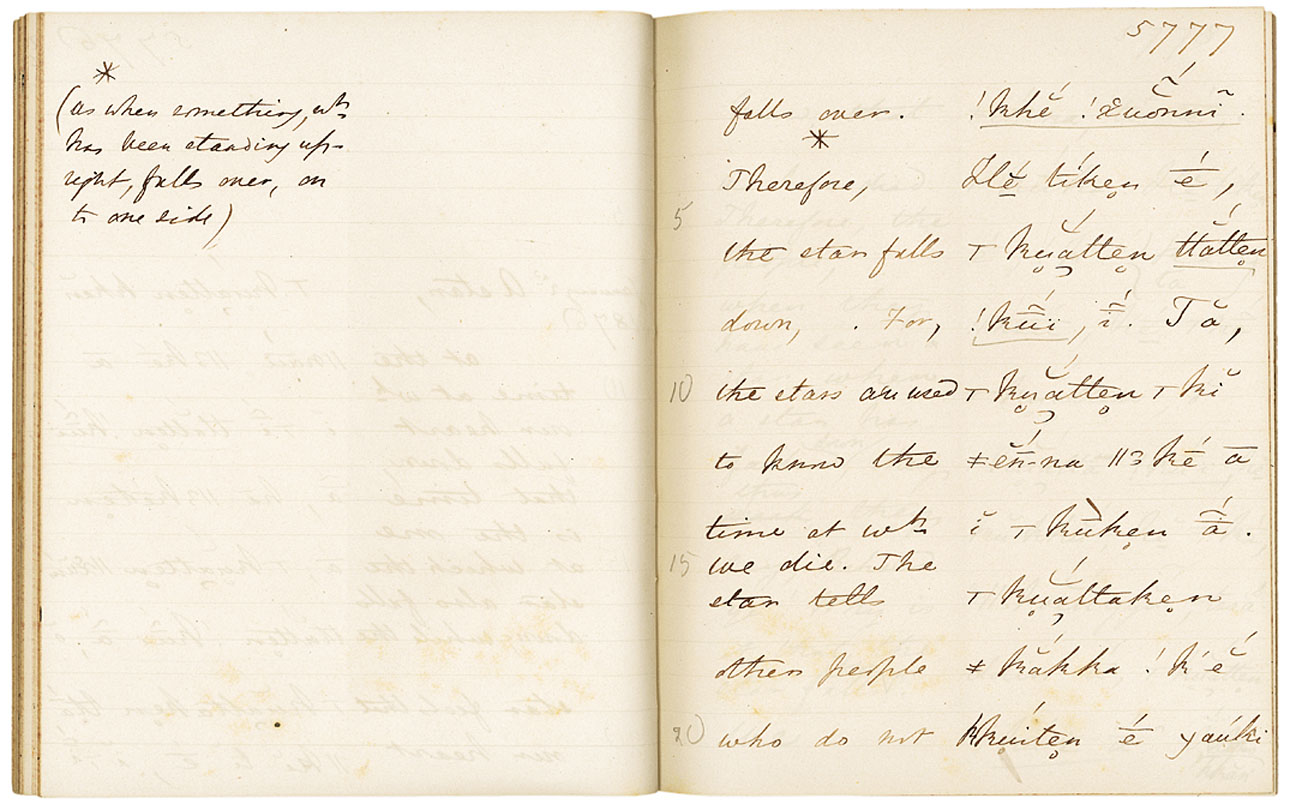 *
(as when something, wh
has been standing up-
right, falls over, on
to one side)
5777
falls over. !khĕ́ !χuŏnnĭ.
*
Therefore, Ilĕ tíken é,
5
the star falls ⊤ kuătten ttắtten
down, . For, !kūï, ī́. Tă,
10 the stars are used ⊤ kuătten ⊤ kĭ
to know the ≠ĕńn-na ǁɜ ké ā
time at wh ĭ ⊤ kùken ā́.
15 we die. The
star tells ⊤ kuăttaken
other people ≠ kăkka !k'ĕ́
20 who do not kkúiten é yaúki